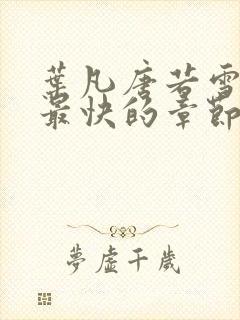 葉凡唐若雪
最快的章節
夢虛千歲